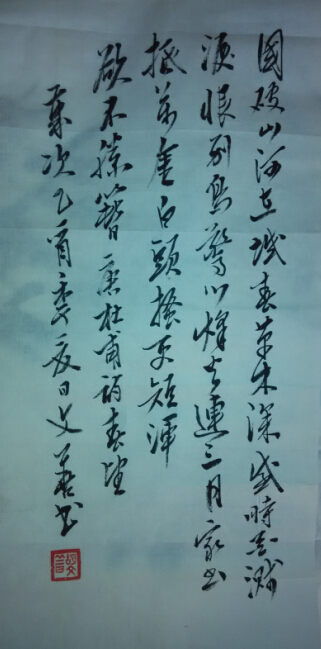 國破山河在城春草木深感時花濺
淚恨別鳥驚心烽火連三月家書
抵萬金白頭搔更短渾
欲不勝簪杜甫詩春望
歲次乙酉季夏日文书